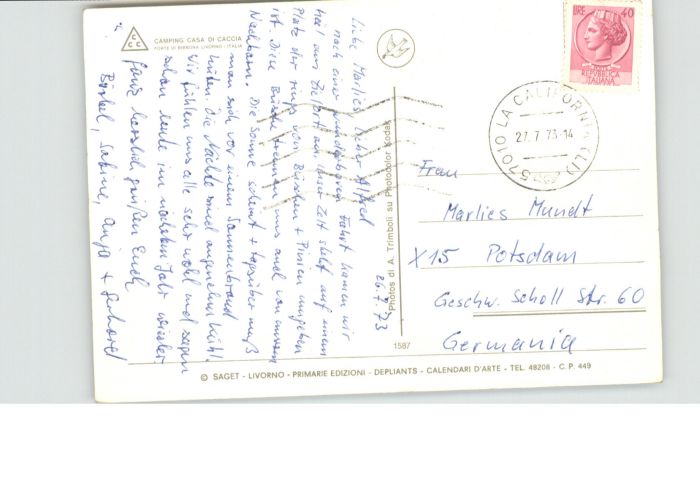 CCCC
CAMPING CASA DI CACCIA
FORTE DI BIBBONA LIVORNO - ITALIA
26.7.73
Liebe Marlies, lieber Alfred
nach einer wunderbaren Fahrt kamen wir
heil am Zielort an. Unser Zelt steht auf einem
Platz der rings von Büschen + Pinien umgeben
ist. Diese Büsche trennen uns auch von unseren
Nachbarn. Die Sonne scheint + tagsüber muß
man sich vor einem Sonnenbrand
hüten. Die Nächte sind angenehm kühl.
Wir fühlen uns alle sehr wohl und sagen
schon heute im nächsten Jahr wieder.
Ganz herzlich grüßen Euch
Bärbel, Sabine, Anja + Gerhard
Photos di A. Trimboli su Photocolor Kodak
1587
LIRE 40
REPUBBLICA
ITALIANA
57010 LA CALIFORNIA (LI)
27.7.73-14
Frau
Marlies Mundt
X15 Potsdam
Geschw. Scholl Str. 60
Germania
© SAGET - LIVORNO - PRIMARIE EDIZIONI - DEPLIANTS - CALENDARI D'ARTE - TEL. 48208 - C.P. 449